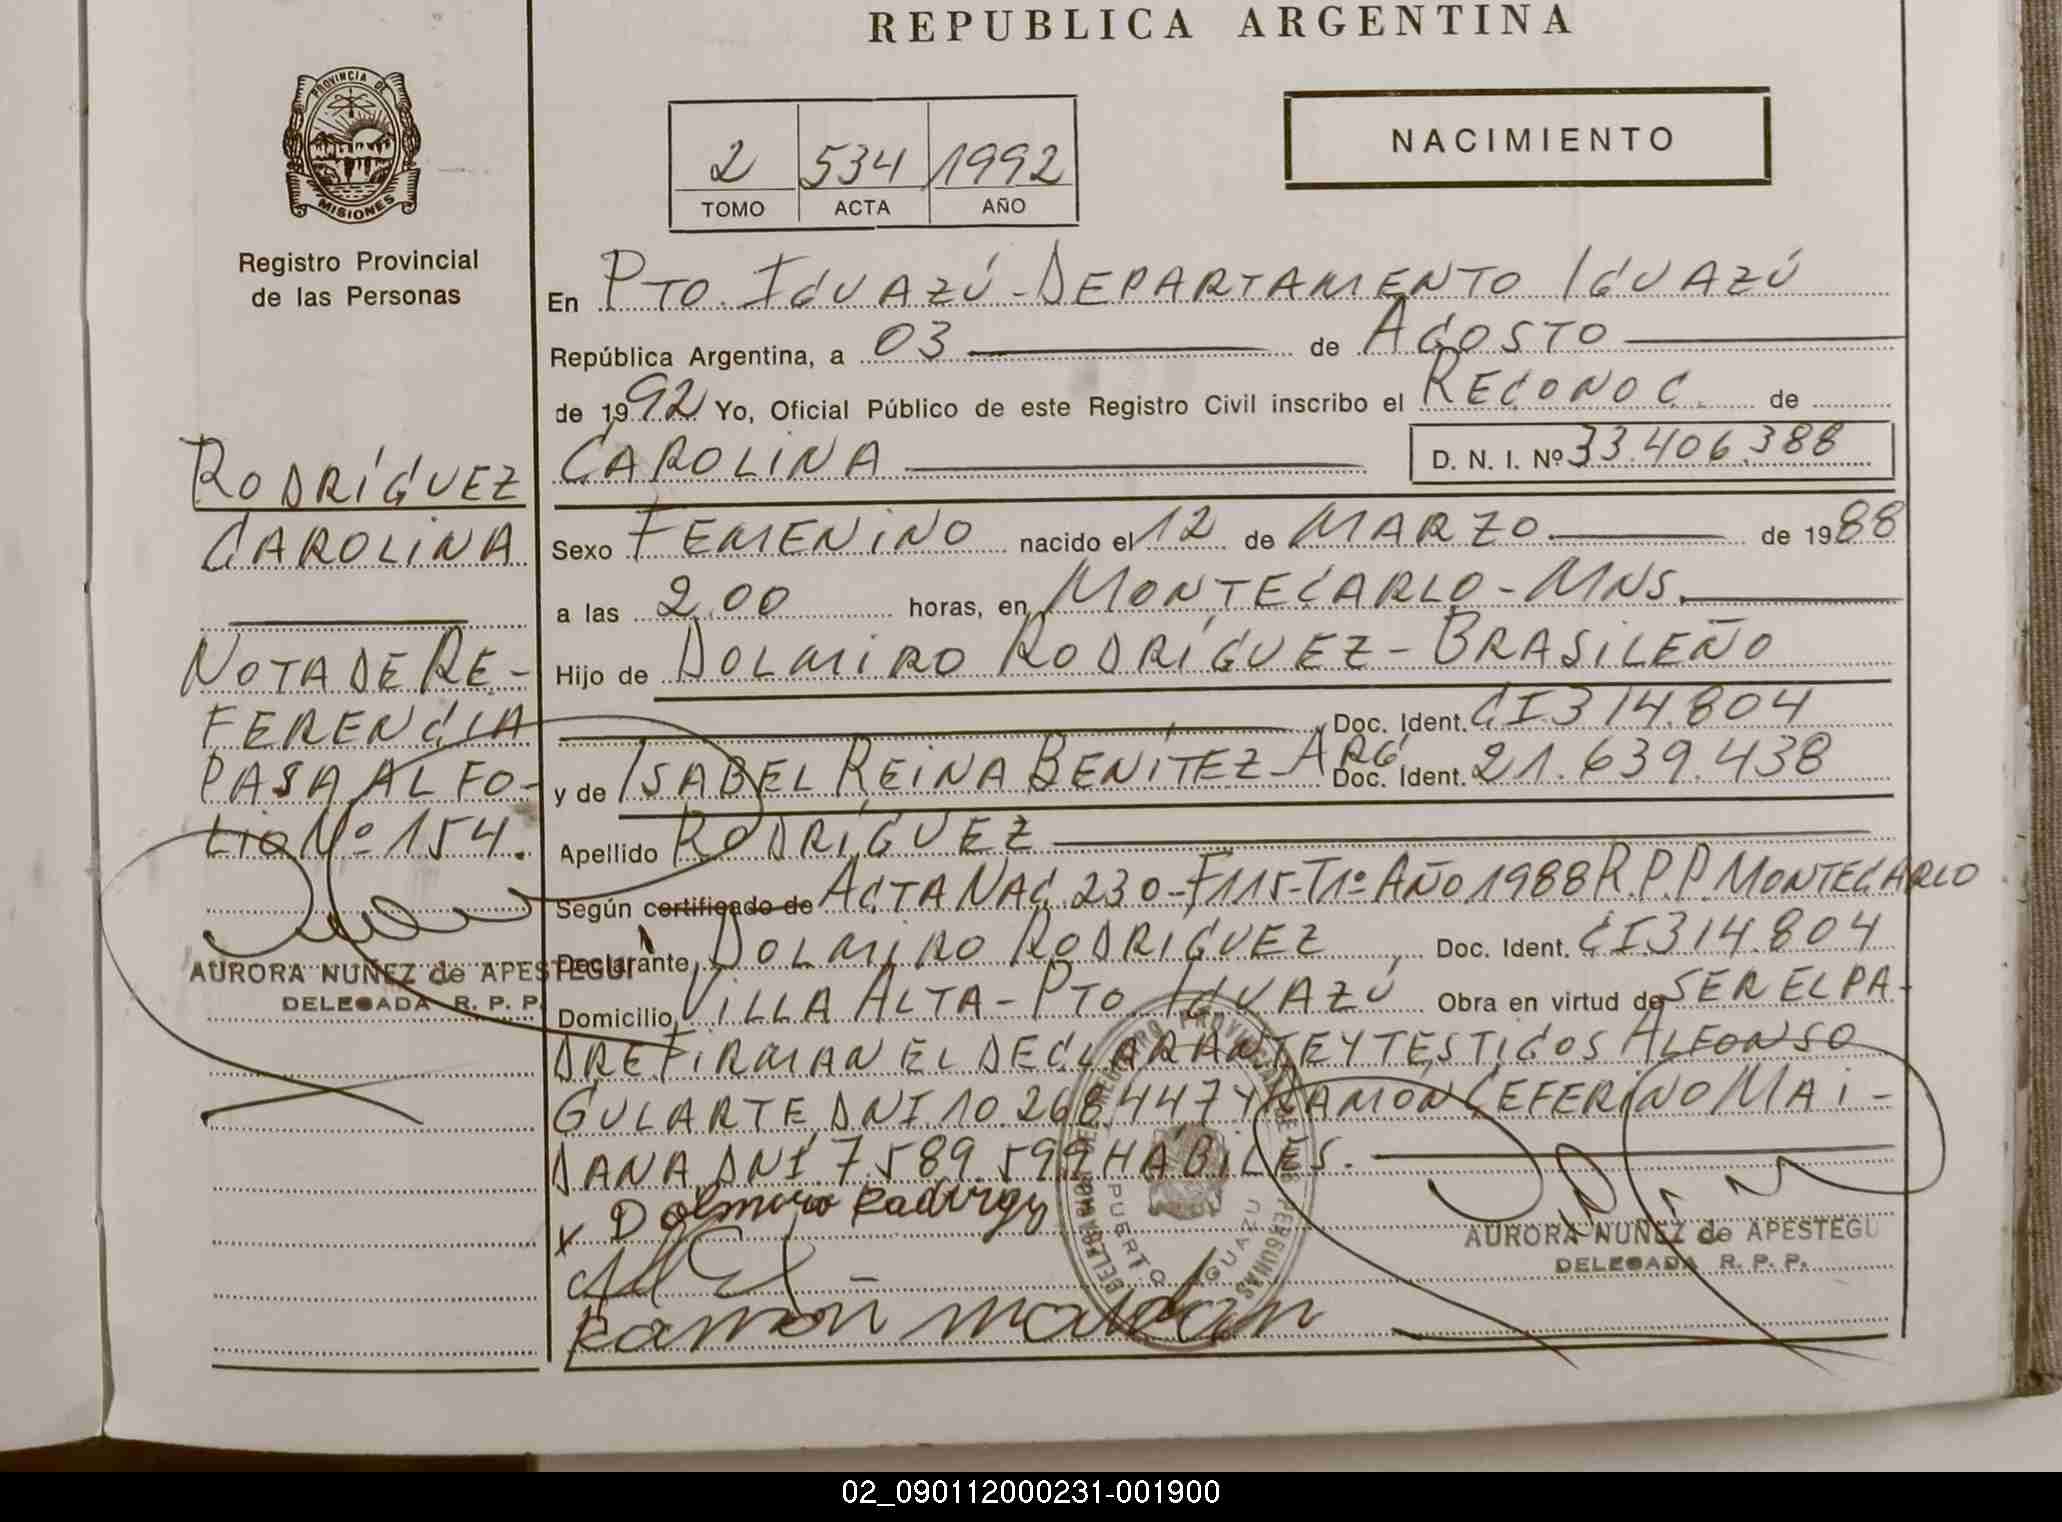 REPUBLICA ARGENTINA
PROVINCIA DE
MISIONES
Registro Provincial
de las Personas
2 534 1992
TOMO ACTA AÑO
NACIMIENTO
En PTO. IGUAZÚ - DEPARTAMENTO IGUAZÚ
República Argentina, a 03 de AGOSTO
de 1992 Yo, Oficial Público de este Registro Civil inscribo el RECONOC. de
CAROLINA D. N. I. Nº 33.406.388
Sexo FEMENINO nacido el 12 de MARZO de 1988
a las 2,00 horas, en MONTECARLO - MNS.
Hijo de DOLMIRO RODRÍGUEZ - BRASILEÑO
Doc. Ident. CI 314.804
y de ISABEL REINA BENÍTEZ - ARG. Doc. Ident. 21.639.438
Apellido RODRÍGUEZ
Según certificado de ACTA NAC. 230 - F115 - T1º AÑO 1988 R.P.P. MONTECARLO
Declarante DOLMIRO RODRIGUEZ, Doc. Ident. CI 314.804
Domicilio VILLA ALTA - PTO. IGUAZÚ Obra en virtud de SER EL PA-
DRE. FIRMAN EL DECLARANTE Y TESTIGOS ALFONSO
GULARTE DNI 10.268.447 Y RAMON CEFERINO MAI-
DANA DNI 7.589.599 HÁBILES.
x Dolmiro
Ramon
AURORA NUÑEZ de APESTEGU
DELEGADA R. P. P.
REGISTRO PROVINCIAL DE LAS PERSONAS
PUERTO IGUAZU
RODRÍGUEZ
CAROLINA
NOTA DE RE-
FERENCIA
PASA AL FO-
LIO Nº 154.
AURORA NUÑEZ de APESTEGUI
DELEGADA R. P. P.
02_090112000231-001900